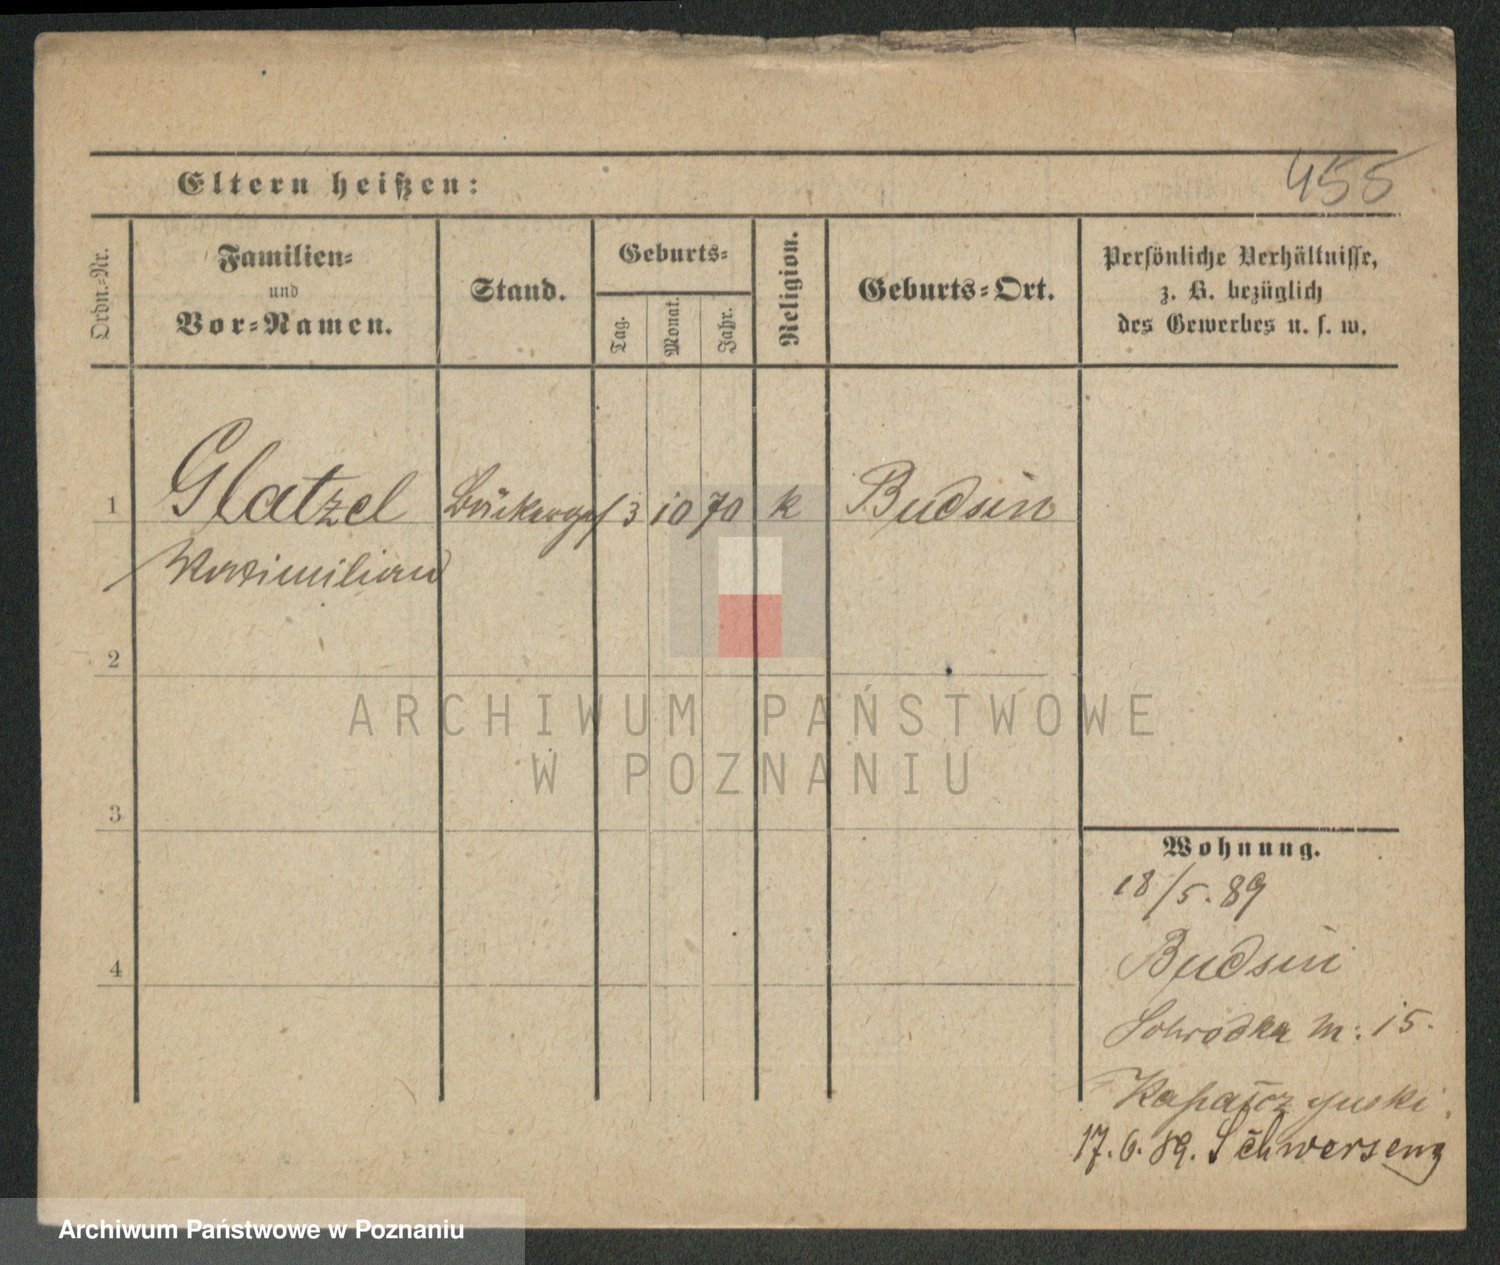 455
Eltern heißen:
Ordn.-Nr.
Familien-
und
Vor-Namen.
Stand.
Geburts-
Tag.
Monat.
Jahr.
Religion.
Geburts-Ort.
Persönliche Verhältnisse,
z. B. bezüglich
des Gewerbes u. s. w.
1 Glatzel Bäckerges 3 10 70 k Budsin
Maximilian
2
3
4
Wohnung.
18/5. 89
Budsin
Schrodka 15.
17. 6. 89. Schwersenz
ARCHIWUM PAŃSTWOWE
W POZNANIU
Archiwum Państwowe w Poznaniu